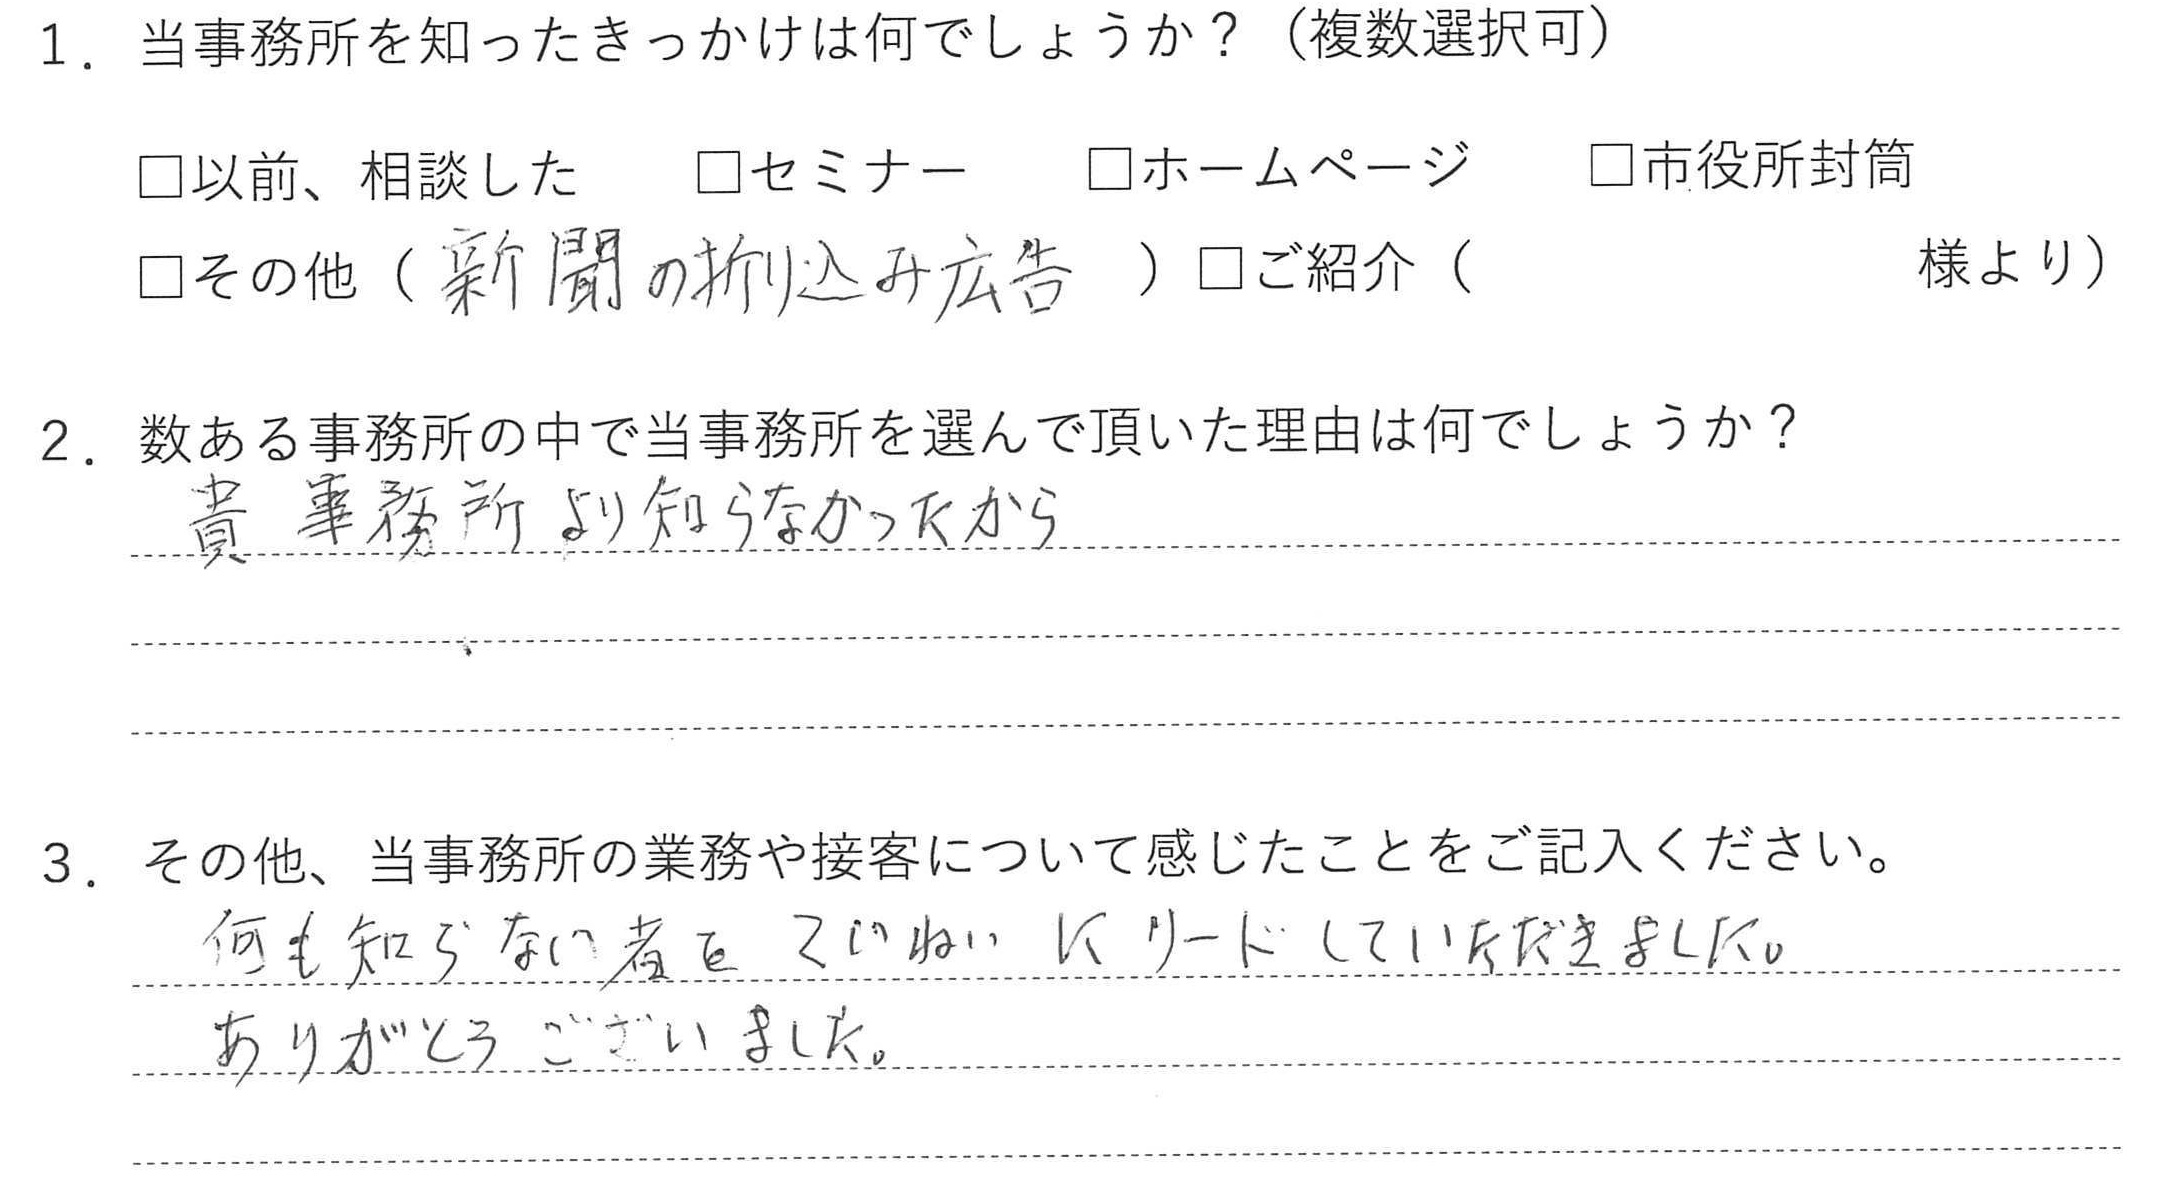 1．当事務所を知ったきっかけは何でしょうか？（複数選択可）
□以前、相談した　□セミナー　□ホームページ　□市役所封筒
□その他（新聞の折り込み広告）□ご紹介（　　　様より）
2．数ある事務所の中で当事務所を選んで頂いた理由は何でしょうか？
貴事務所より知らなかったから
3．その他、当事務所の業務や接客について感じたことをご記入ください。
何も知らない者をていねいにリードしていただきました。
ありがとうございました。